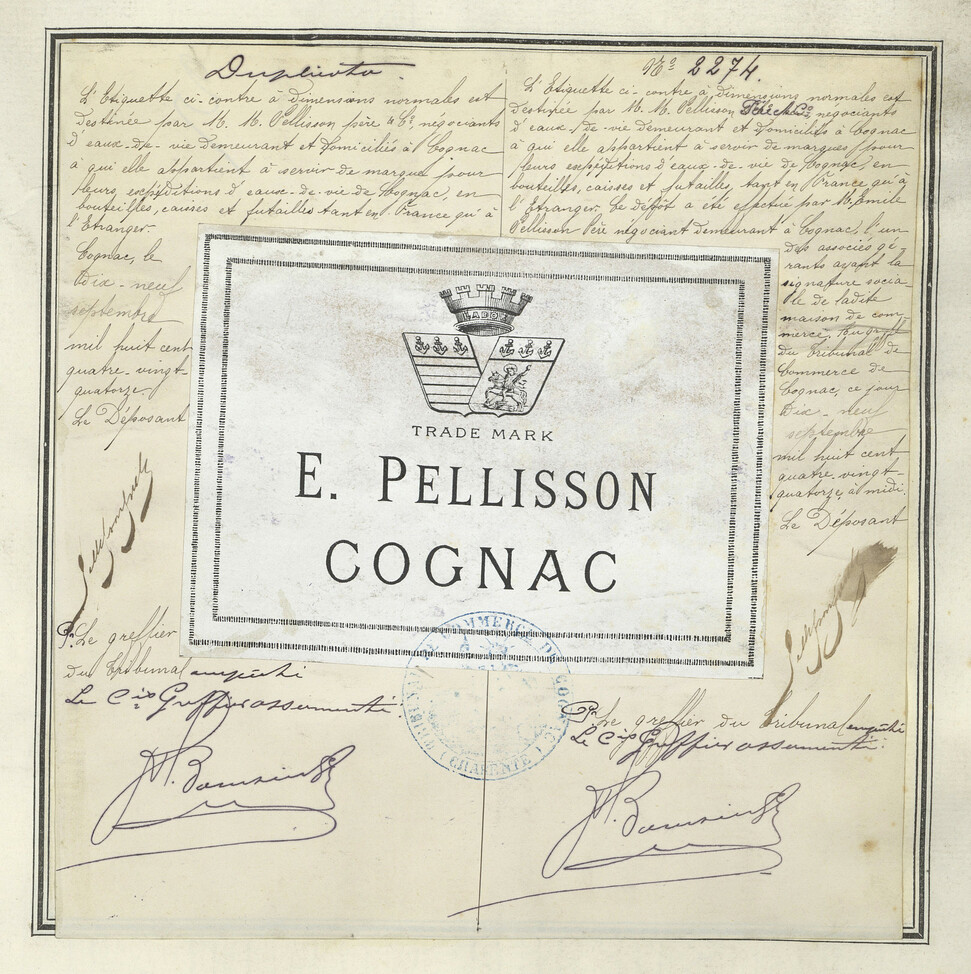 Duplicata.
L'Etiquette ci-contre à dimensions normales est
destinée par M. M. Pellisson père & Cº, négociants
d'eaux-de-vie demeurant et domiciliés à Cognac
à qui elle appartient à servir de marque pour
leurs expéditions d'eaux-de-vie de Cognac, en
bouteilles, caisses et futailles tant en France qu'à
l'Etranger.
Cognac, le
Dix-neuf
septembre
mil huit cent
quatre-vingt
quatorze.
Le Déposant
Pr. Le greffier
du Tribunal empêché
Le Cis Greffier assermenté.
Nº 2274.
L'Etiquette ci-contre à dimensions normales est
destinée par M. M. Pellisson Père & Cº, négociants
d'eaux-de-vie demeurant et domiciliés à Cognac
à qui elle appartient à servir de marques pour
leurs expéditions d'eaux-de-vie de Cognac, en
bouteilles, caisses et futailles, tant en France qu'à
l'Etranger. Ce dépôt a été effectué par M. Emile
Pellisson Père négociant demeurant à Cognac, l'un
des associés gé-
rants ayant la
signature socia-
le de ladite
maison de com-
merce, au greffe
du Tribunal de
Commerce de
Cognac, ce jour
Dix-neuf
septembre
mil huit cent
quatre-vingt-
quatorze à midi.
Le Déposant
Pr. Le greffier du Tribunal empêché
Le Cis Greffier assermenté.
LABOR
TRADE MARK
E. PELLISSON
COGNAC
DE COMMERCE DE COGNAC
(CHARENTE)